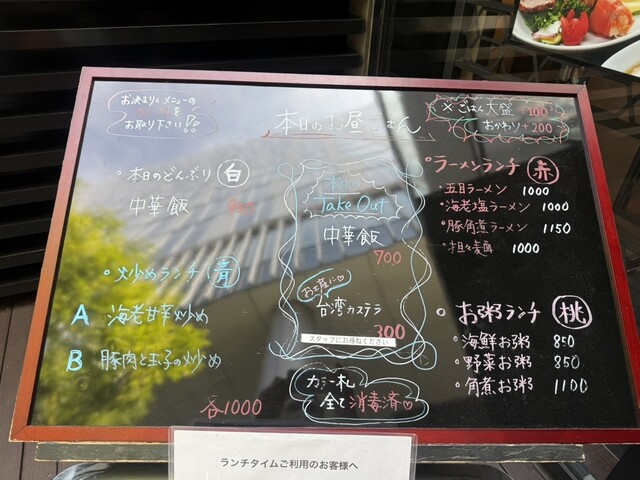 お決まりしメニューの
を
お取り下さい!!
本日のお昼ごはん
ごはん大盛 +100
おかわり +200
本日のどんぶり 白
中華飯
炒めランチ 青
A 海老甘辛炒め
B 豚肉と玉子の炒め
各1000
本日の
Take Out
中華飯
700
お土産に♡
台湾カステラ
300
スタッフにお尋ねください
カラー札
全て消毒済♡
ラーメンランチ 赤
・五目ラーメン 1000
・海老塩ラーメン 1000
・豚角煮ラーメン 1150
・担々麺 1000
お粥ランチ 桃
海鮮お粥 850
野菜お粥 850
角煮お粥 1100
ランチタイムご利用のお客様へ